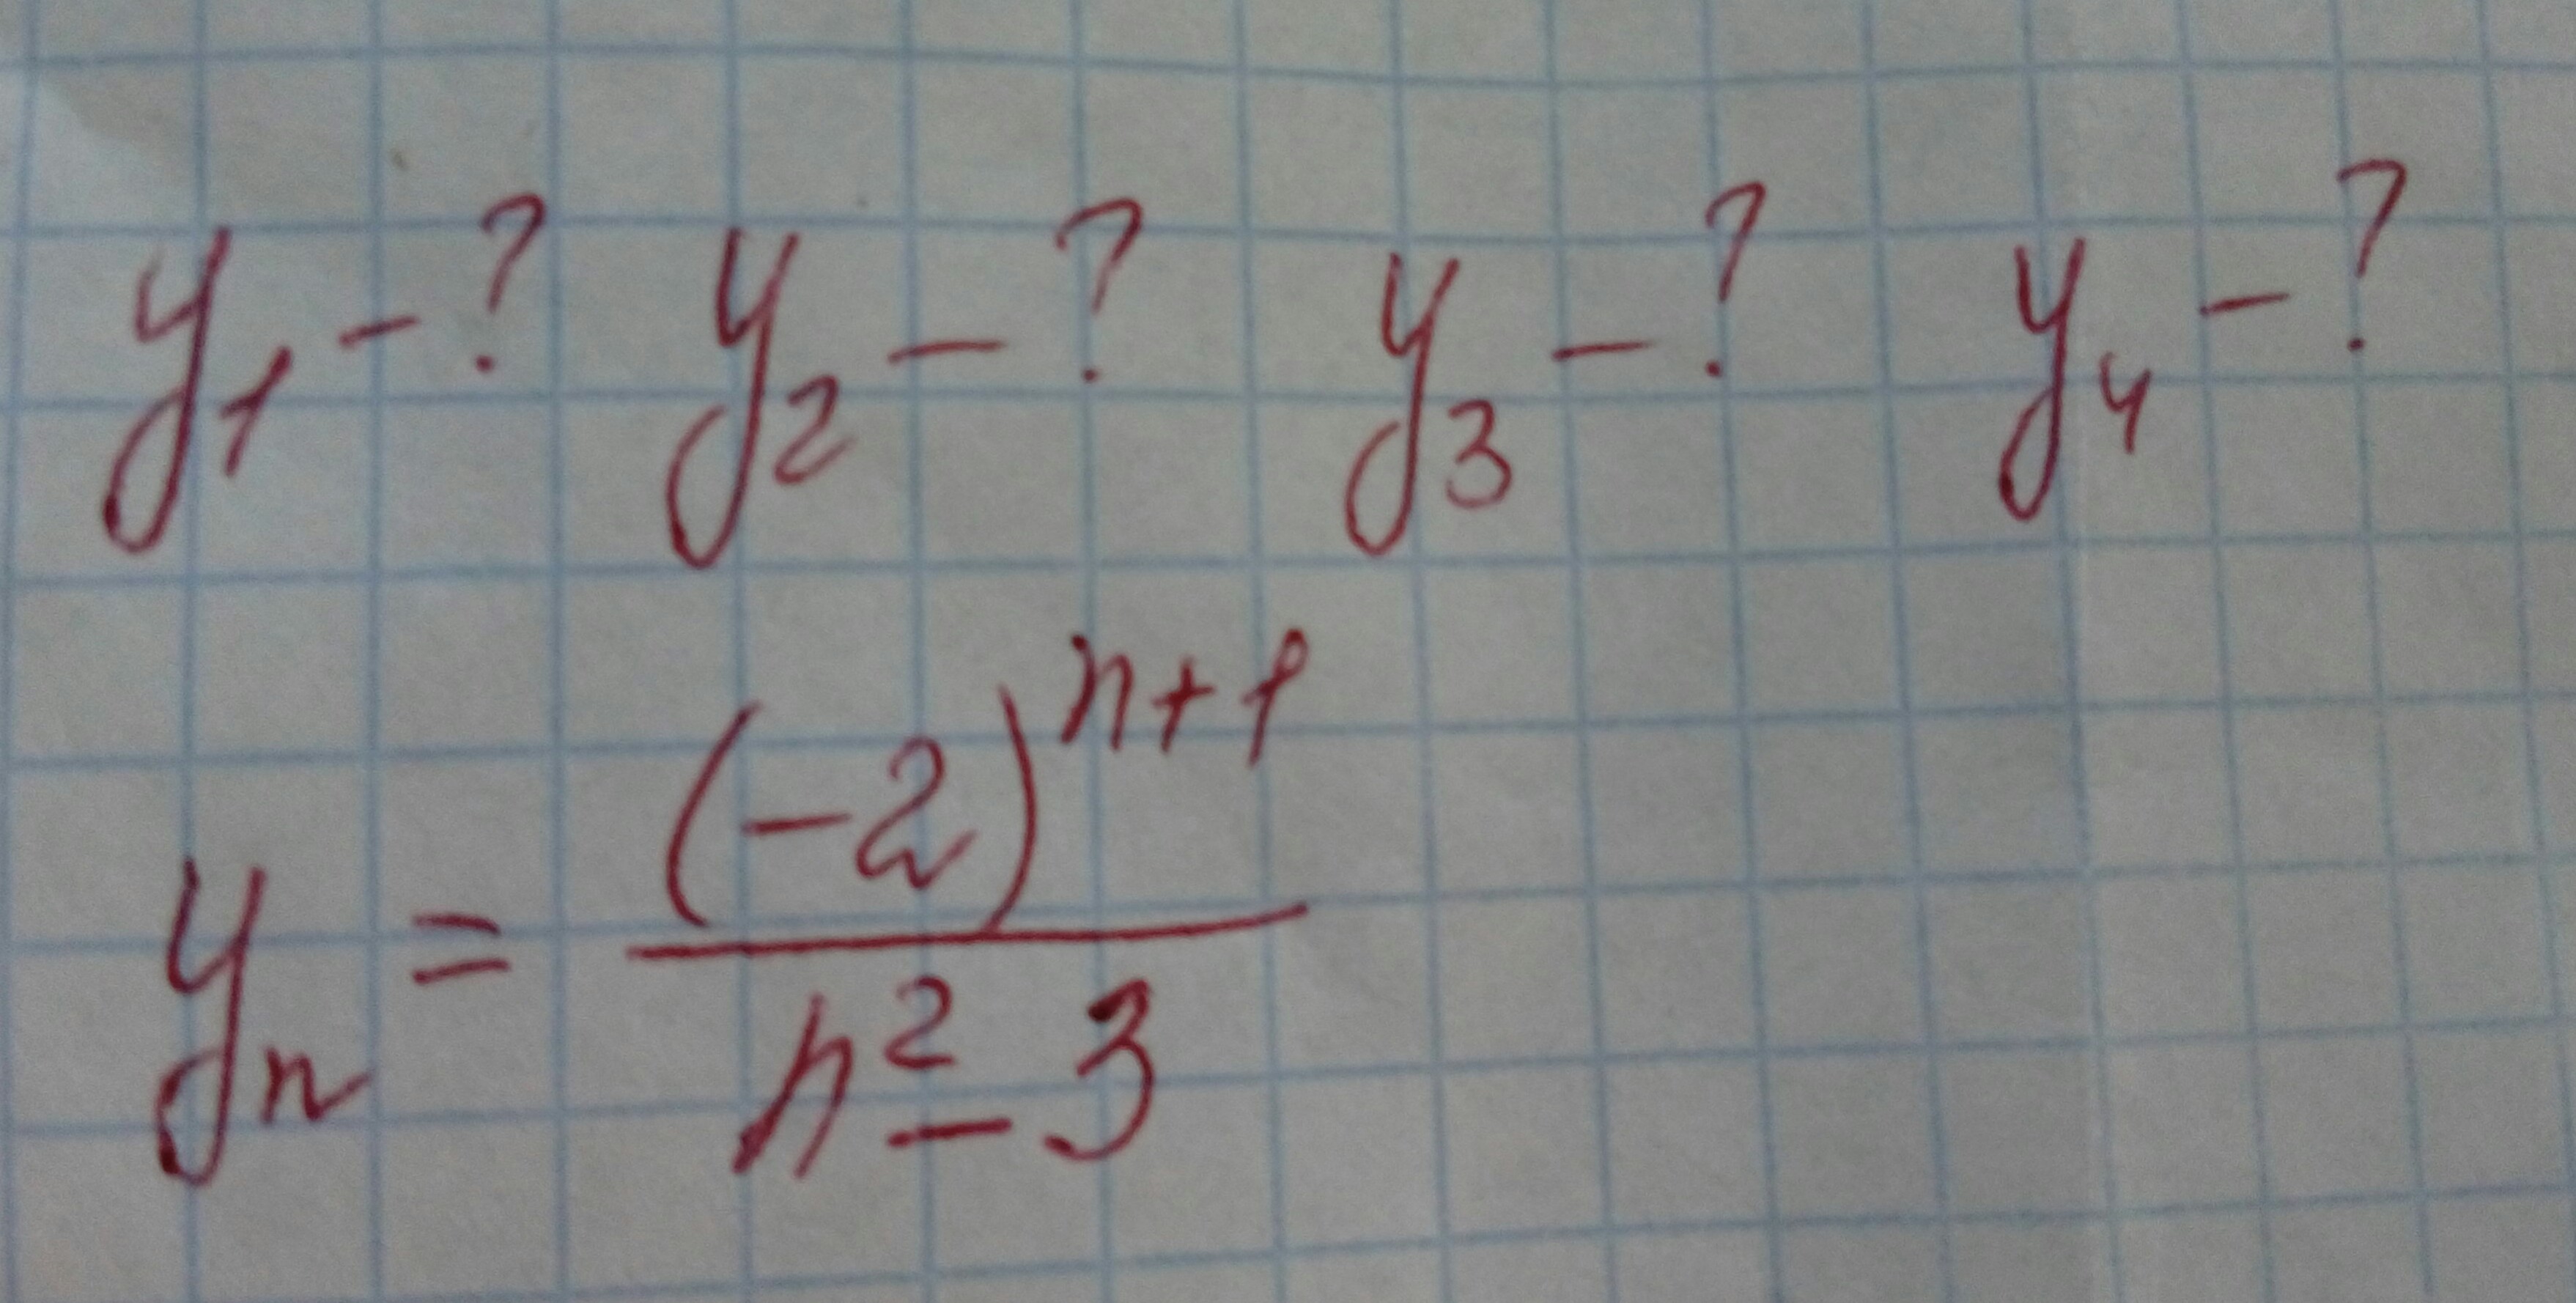 y₁ - ? y₂ - ? y₃ - ? y₄ - ?
yₙ = (-2)ⁿ⁺¹ / n² - 3